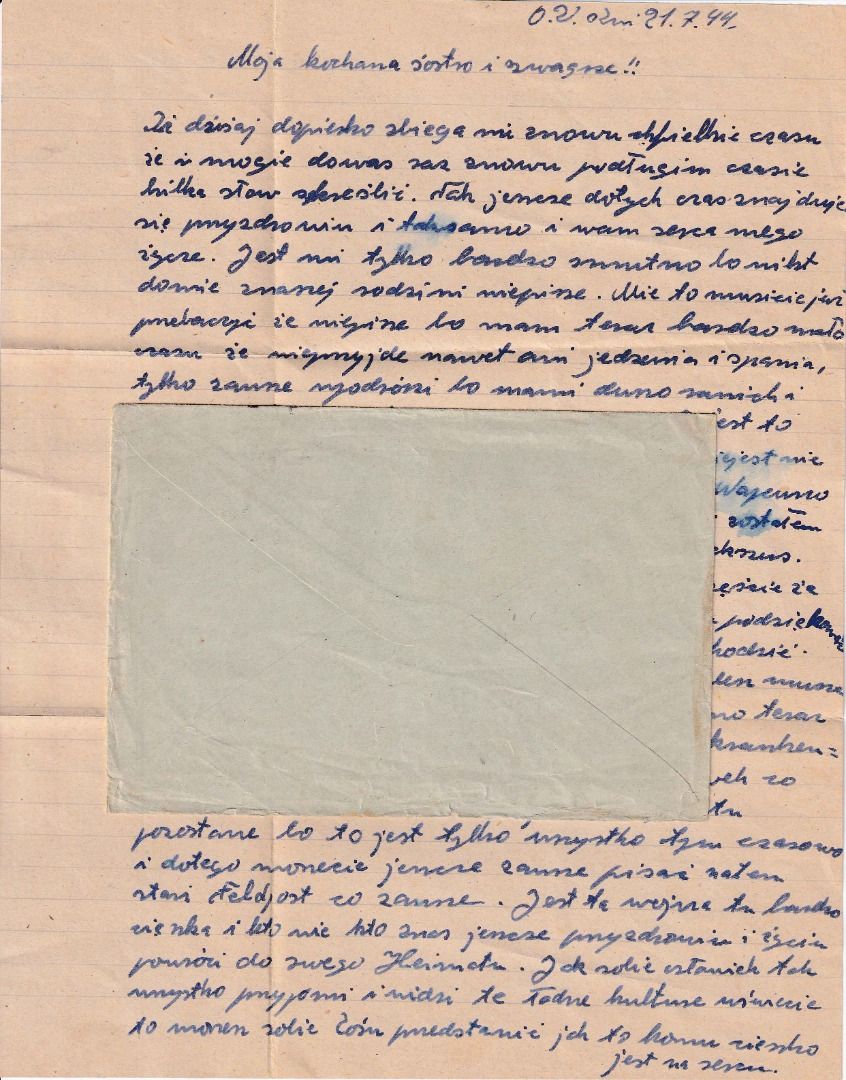 O.U. dni 21.7.44.
Moja kochana śostro i szwagrze!!
Że dzisiaj dopierko zbiega mi znowu czasu
że i mogie dowas raz znowu podługim czasie
kilka słow skreślić. Tak jencze dotych czas znajduje
się pzyzdrowiu i taksamo i wam serca mego
życze. Jest mi tylko bardzo smutno bo nikt
domie znaszej rodzini niepisze. Mie to musicie już
pzebaczyć że niepisze bo mam teraz bardzo mało
czasu że niepzyjde nawet ani jedzenia i spania,
tylko zawsze bo mami duzo ranich i
jest to
jest nie
zostałem
że
podziękować
hodzić.
musza
teraz
kranken=
co
tu
pozostane bo to jest tylko wszystko tym czasowo
i dotego monecie jencze zawsze pisać natem
stari Feldpost co zawsze. Jest ta wojna tu bardzo
cięszka i kto wie kto znas jencze pzyzdrowiu i życiu
powróci do swego Heimatu. Jak sobie człowiek tak
wszystko pzypomi i widzi te ładne kulture wświecie
to morzesz sobie Łośu predstawić jak to komu cieszko
jest na sercu.